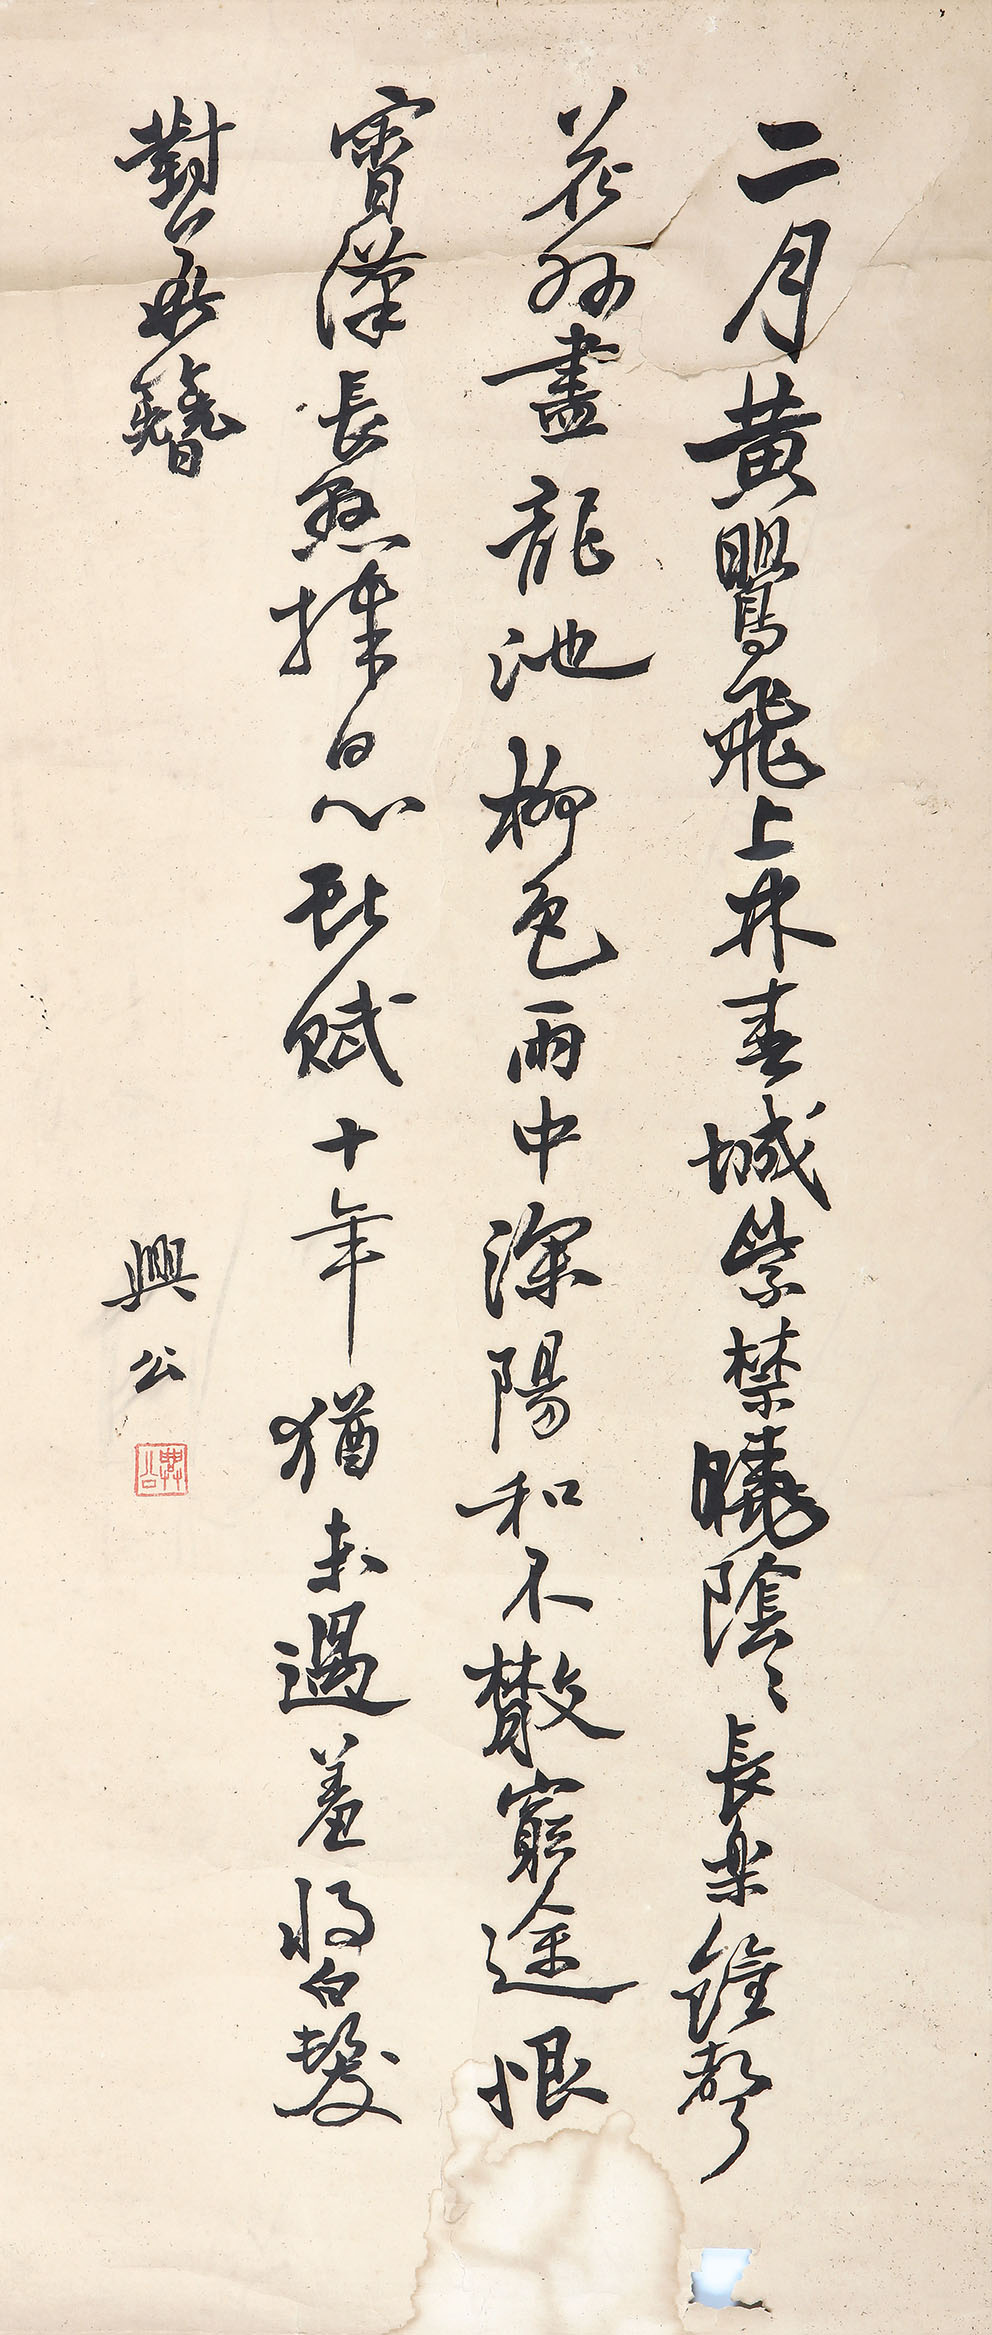 二月黃鸎飛上林春城紫禁曉陰々長楽鐘聲
花外盡龍池柳色雨中深陽和不散窮途恨
霄漢長懸捧日心献賦十年猶未遇羞將白髮
對華簪
興公
興公